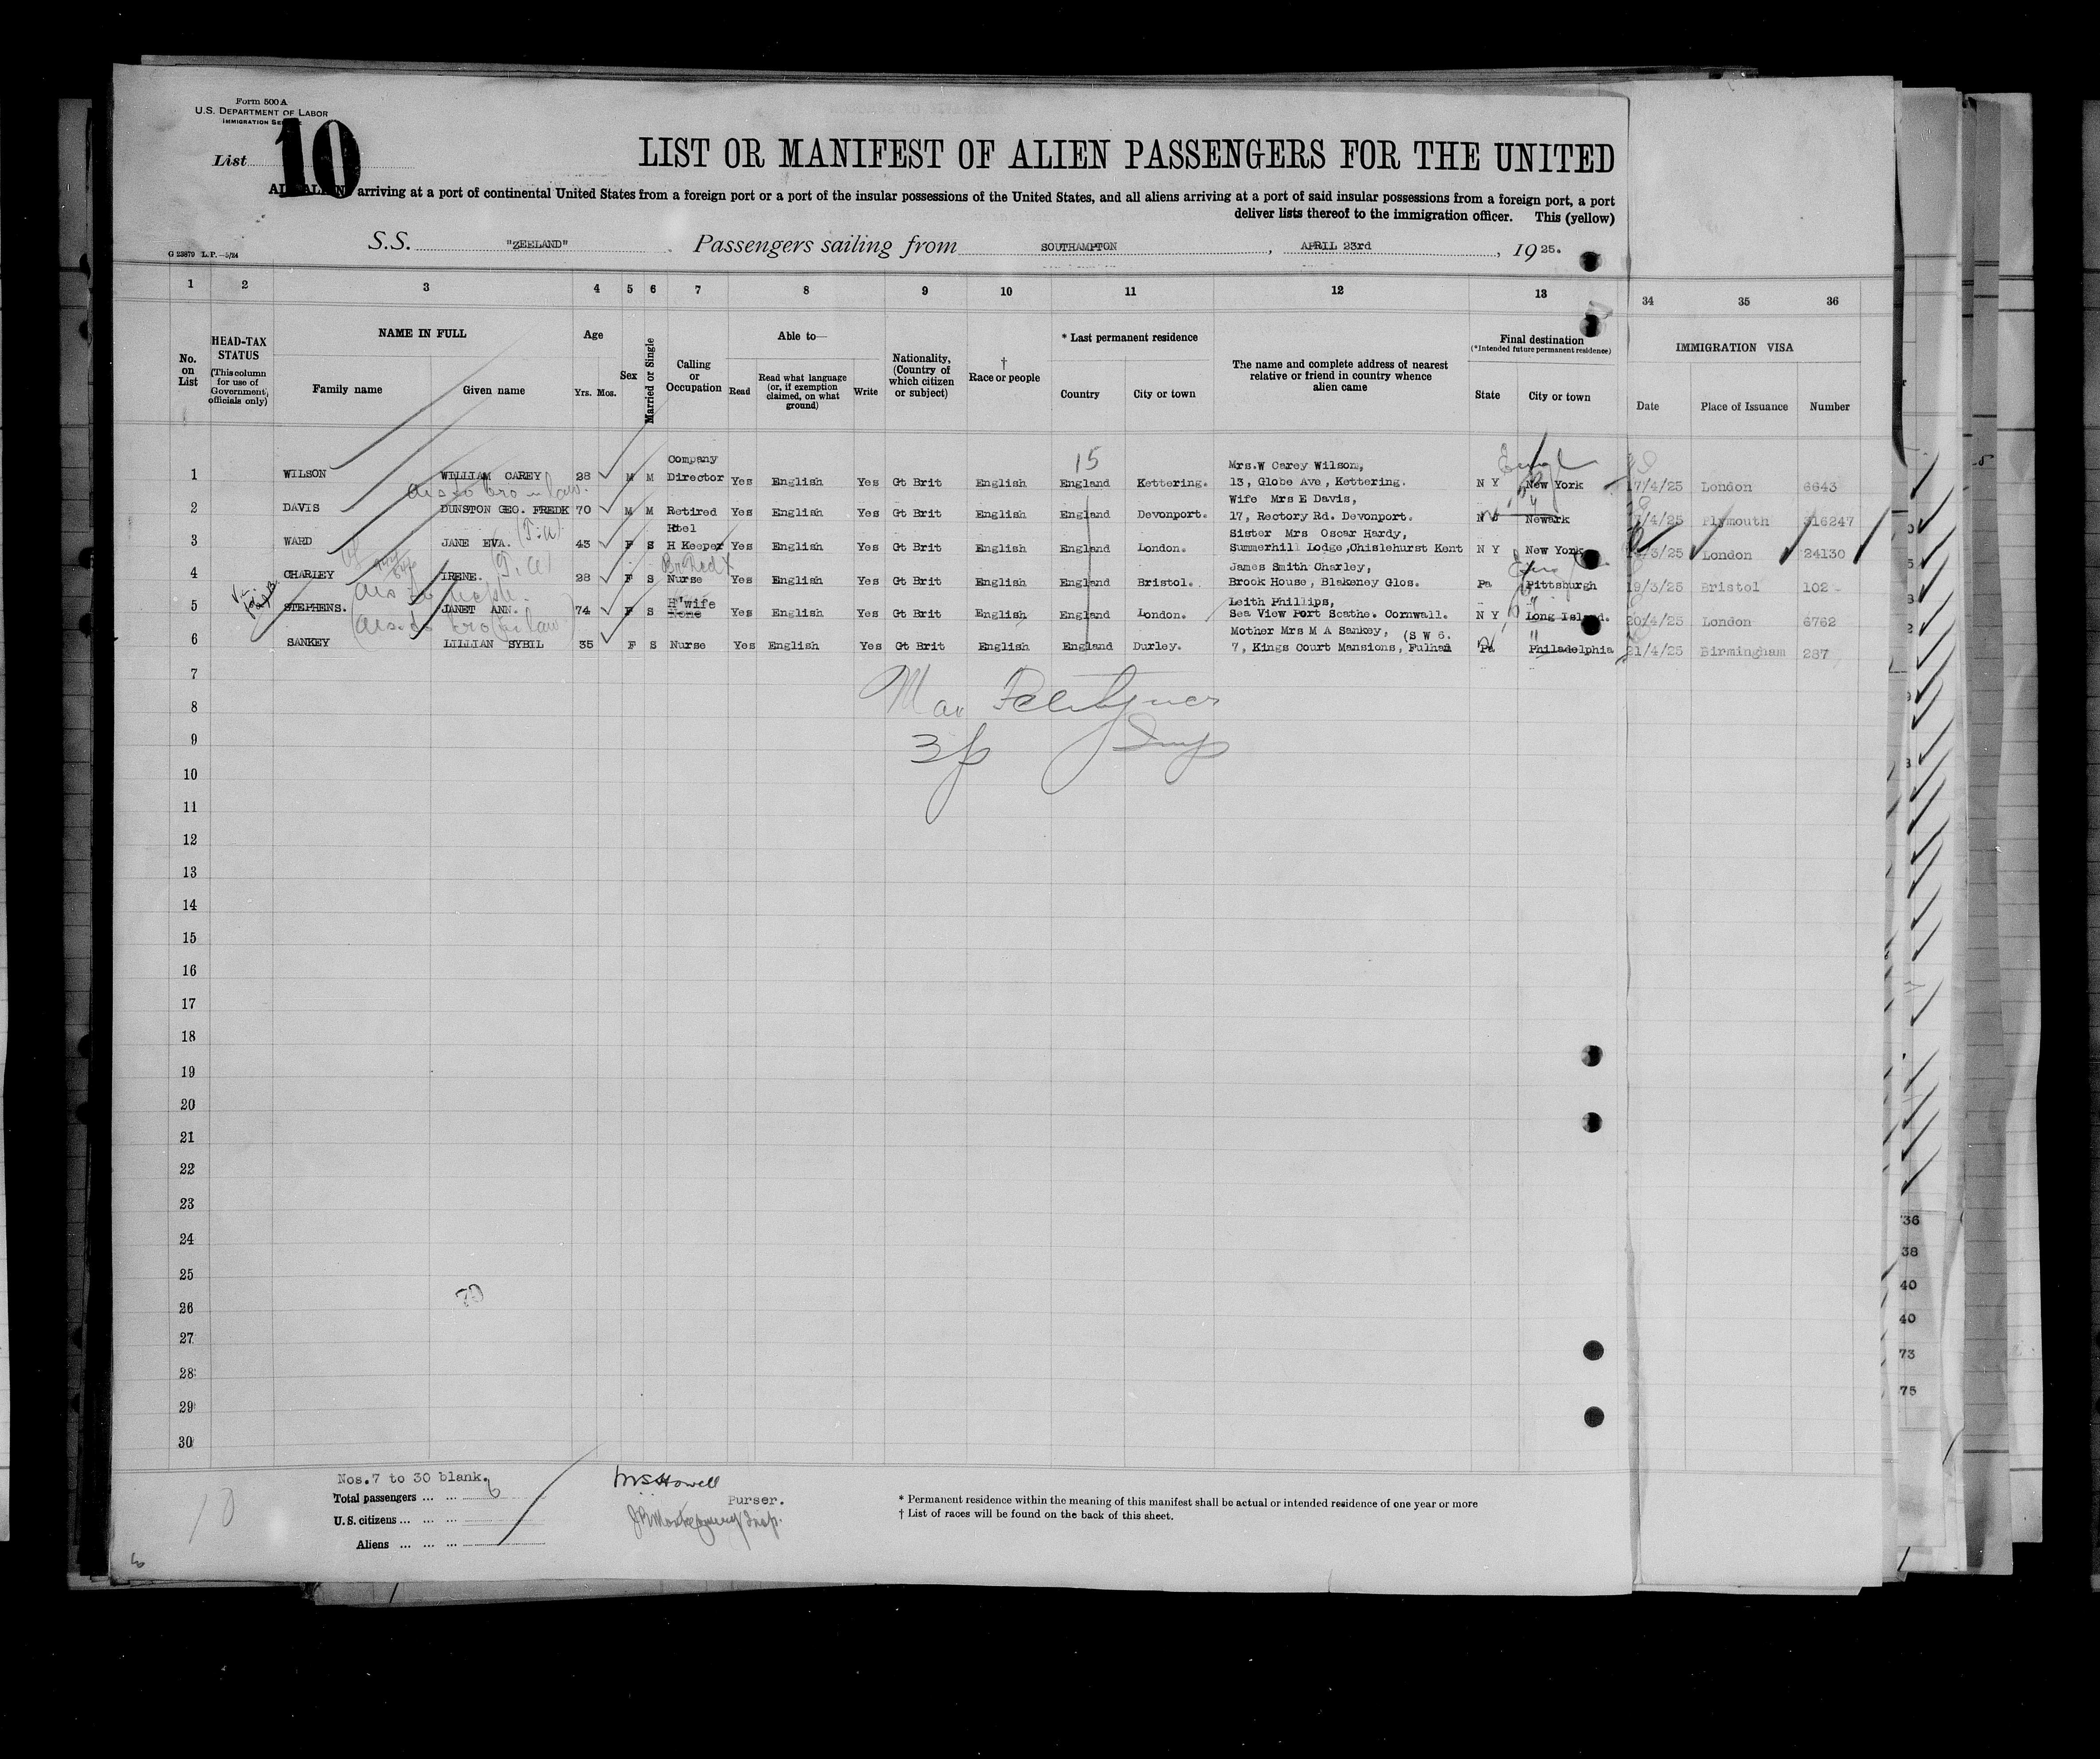 Form 500 A
U.S. DEPARTMENT OF LABOR
IMMIGRATION
List 10
LIST OR MANIFEST OF ALIEN PASSENGERS FOR THE UNITED
arriving at a port of continental United States from a foreign port or a port of the insular possessions of the United States, and all aliens arriving at a port of said insular possessions from a foreign port, a port
deliver lists thereof to the immigration officer. This (yellow)
S.S. "ZEELAND" Passengers sailing from SOUTHAMPTON, APRIL 23rd, 1925.
G 23879 L.P.—5/24
1 2 3 4 5 6 7 8 9 10 11 12 13 34 35 36
No. on List
HEAD-TAX STATUS (This column for use of Government officials only)
NAME IN FULL
Family name Given name
Age
Yrs. Mos.
Sex
Married or Single
Calling or Occupation
Able to—
Read Read what language (or, if exemption claimed, on what ground) Write
Nationality, (Country of which citizen or subject)
† Race or people
* Last permanent residence
Country City or town
The name and complete address of nearest relative or friend in country whence alien came
Final destination
(*Intended future permanent residence)
State City or town
IMMIGRATION VISA
Date Place of Issuance Number
15
1 WILSON WILLIAM CAREY 28 M M Company Director Yes English Yes Gt Brit English England Kettering. Mrs.W Carey Wilson, 13, Globe Ave, Kettering. N Y New York 17/4/25 London 6643
2 DAVIS DUNSTON GEO. FREDK 70 M M Retired Yes English Yes Gt Brit English England Devonport. Wife Mrs E Davis, 17, Rectory Rd. Devonport. Newark /4/25 Plymouth 316247
3 WARD JANE EVA. 43 F S Hotel H Keeper Yes English Yes Gt Brit English England London. Sister Mrs Oscar Hardy, Summerhill Lodge, Chislehurst Kent N Y New York /3/25 London 24130
4 CHARLEY IRENE. 28 F S Nurse Yes English Yes Gt Brit English England Bristol. James Smith Charley, Brook House, Blakeney Glos. Pa Pittsburgh 19/3/25 Bristol 102
5 STEPHENS. JANET ANN. 74 F S H'wife None Yes English Yes Gt Brit English England London. Leith Phillips, Sea View Port Scathe. Cornwall. N Y Long Island. 20/4/25 London 6762
6 SANKEY LILLIAN SYBIL 35 F S Nurse Yes English Yes Gt Brit English England Durley. Mother Mrs M A Sankey, (S W 6. 7, Kings Court Mansions, Fulham Pa Philadelphia 21/4/25 Birmingham 287
7
8
9
10
11
12
13
14
15
16
17
18
19
20
21
22
23
24
25
26
27
28
29
30
Nos.7 to 30 blank.
Total passengers ... ... 6
U.S. citizens ... ... ...
Aliens ... ... ...
Howell
Purser.
JB Montgomery Insp.
* Permanent residence within the meaning of this manifest shall be actual or intended residence of one year or more
† List of races will be found on the back of this sheet.
10
36
38
40
40
73
75